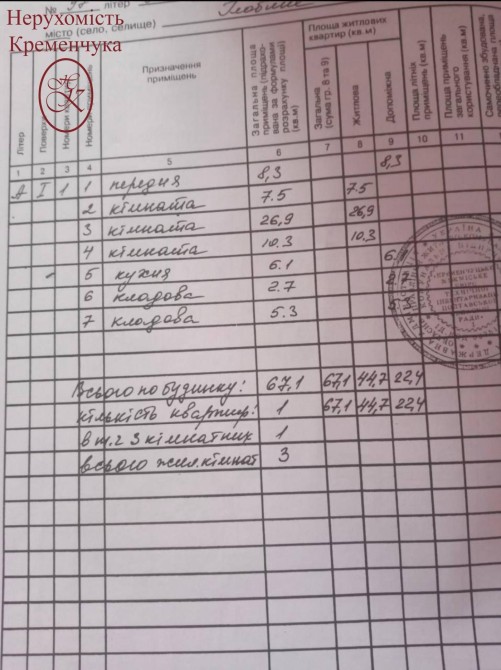 Нерухомість
Кременчука
літер
місто (село, селище)
Літер
Поверх
Призначення
приміщень
Загальна площа
приміщень (підрахо-
вана за формулами
розрахунку площі)
(кв.м)
Площа житлових
квартир (кв.м)
Загальна
(сума гр. 8 та 9)
Житлова
Допоміжна
Площа літніх
приміщень (кв.м)
Площа приміщень
загального
користування (кв.м)
Самочинно збудована,
1 2 3 4 5 6 7 8 9 10 11
А І 1 1 передня 8,3 8,3
2 кімната 7.5 7.5
3 кімната 26,9 26,9
4 кімната 10.3 10.3
5 кухня 6.1 6.1
6 кладова 2.7 2.7
7 кладова 5.3 5.3
Всього по будинку: 67,1 67,1 44,7 22,4
кількість квартир: 1 67,1 44,7 22,4
в т.ч 3 кімнатних 1
всього жил. кімнат 3